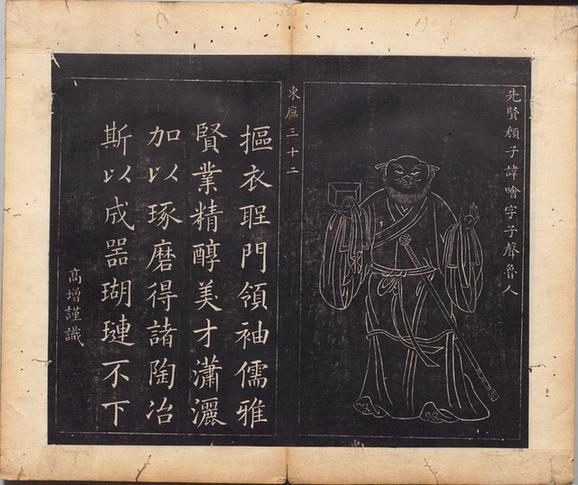 先賢顏子諱噲字子聲魯人
東廡三十二
摳衣聖門領袖儒雅
賢業精醇美才瀟灑
加以琢磨得諸陶冶
斯以成器瑚璉不下
高增謹識